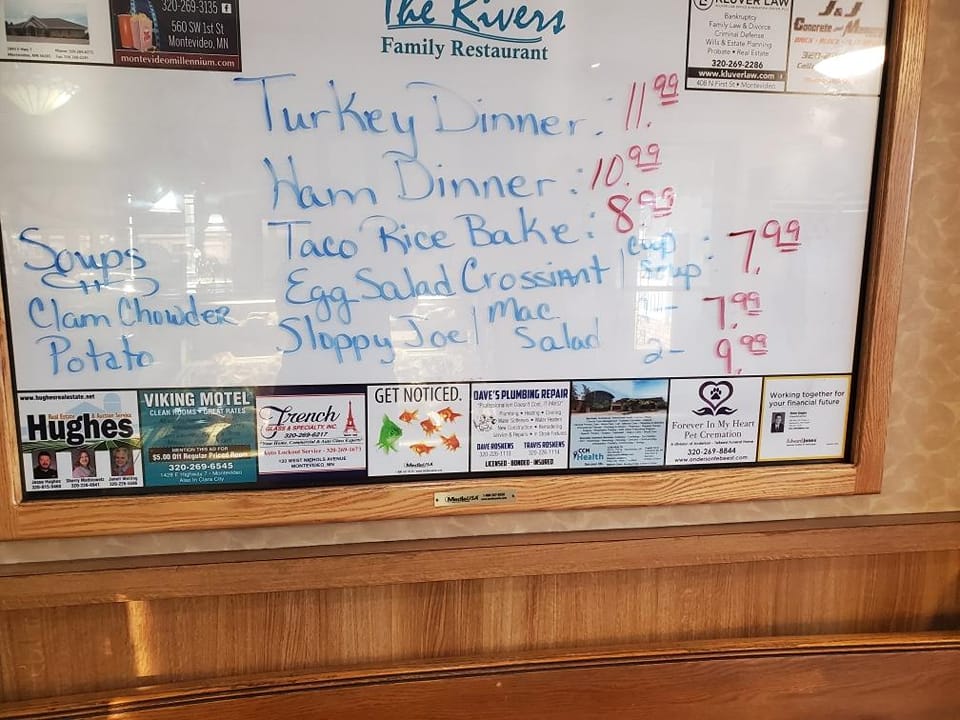 320-269-3135
560 SW 1st St
Montevideo, MN
montevideomillennium.com
The Rivers
Family Restaurant
KLUVER LAW
Bankruptcy
Family Law & Divorce
Criminal Defense
Wills & Estate Planning
Probate • Real Estate
320-269-2286
www.kluverlaw.com
408 N First St • Montevideo
J & J
Concrete and
Turkey Dinner: 11.99
Ham Dinner: 10.99
Taco Rice Bake: 8.99
Egg Salad Crossiant / cup soup: 7.99
Sloppy Joe / Mac Salad 1- 7.99
2- 9.99
Soups
Clam Chowder
Potato
www.hughesrealestate.net
Real Estate & Auction Service
Hughes
VIKING MOTEL
CLEAN ROOMS • GREAT RATES
MENTION THIS AD FOR
$5.00 Off Regular Priced Room
320-269-6545
1428 E Highway 7 - Montevideo
Also in Clara City
French
GLASS & SPECIALTY, INC.
320-269-6217
Auto Lockout Service - 320-269-2673
MONTEVIDEO, MN
GET NOTICED.
MediaUSA
DAVE'S PLUMBING REPAIR
Plumbing • Heating • Cooling
Water Softeners • Water Heaters
New Construction • Remodeling
Service & Repairs
DAVE ROSKENS
TRAVIS ROSKENS
LICENSED - BONDED - INSURED
CCM Health
Forever In My Heart
Pet Cremation
320-269-8844
Working together for
your financial future
Edward Jones
MediaUSA